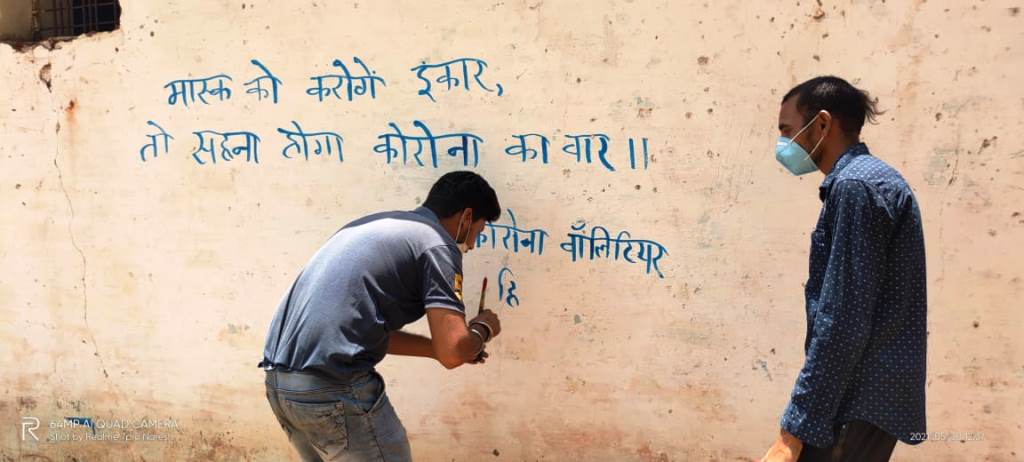 मास्क को करोगें इंकार,
तो सहना होगा कोरोना का वार ||
कोरोना वॉलिटियर
हि
64MP AI QUAD CAMERA
Shot by Realme 7pro Naresh